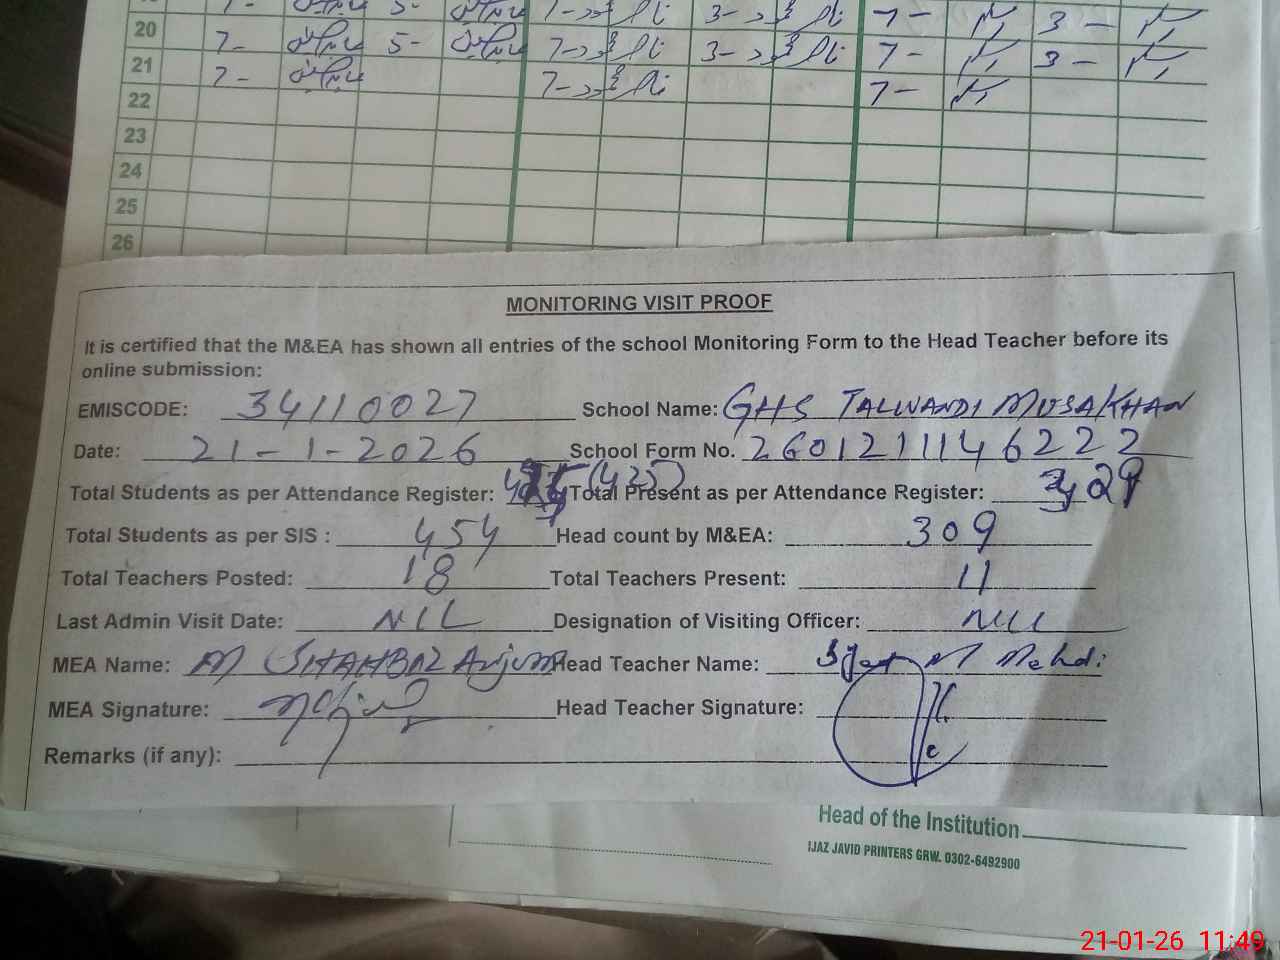 20 7- 5- 7- 3- 7- 3-
21 7- 7- 7-
22
23
24
25
26
MONITORING VISIT PROOF
It is certified that the M&EA has shown all entries of the school Monitoring Form to the Head Teacher before its
online submission:
EMISCODE: 34110027 School Name: GHS TALWANDI MUSA KHAN
Date: 21-1-2026 School Form No. 260121114 6222
Total Students as per Attendance Register: (435) Total Present as per Attendance Register:
Total Students as per SIS : 454 Head count by M&EA: 309
Total Teachers Posted: 18 Total Teachers Present: 11
Last Admin Visit Date: NIL Designation of Visiting Officer: NIL
MEA Name: M SHAHBAZ Anjum Head Teacher Name: M Mehdi
MEA Signature: Head Teacher Signature:
Remarks (if any):
Head of the Institution
IJAZ JAVID PRINTERS GRW. 0302-6492900
21-01-26 11:49